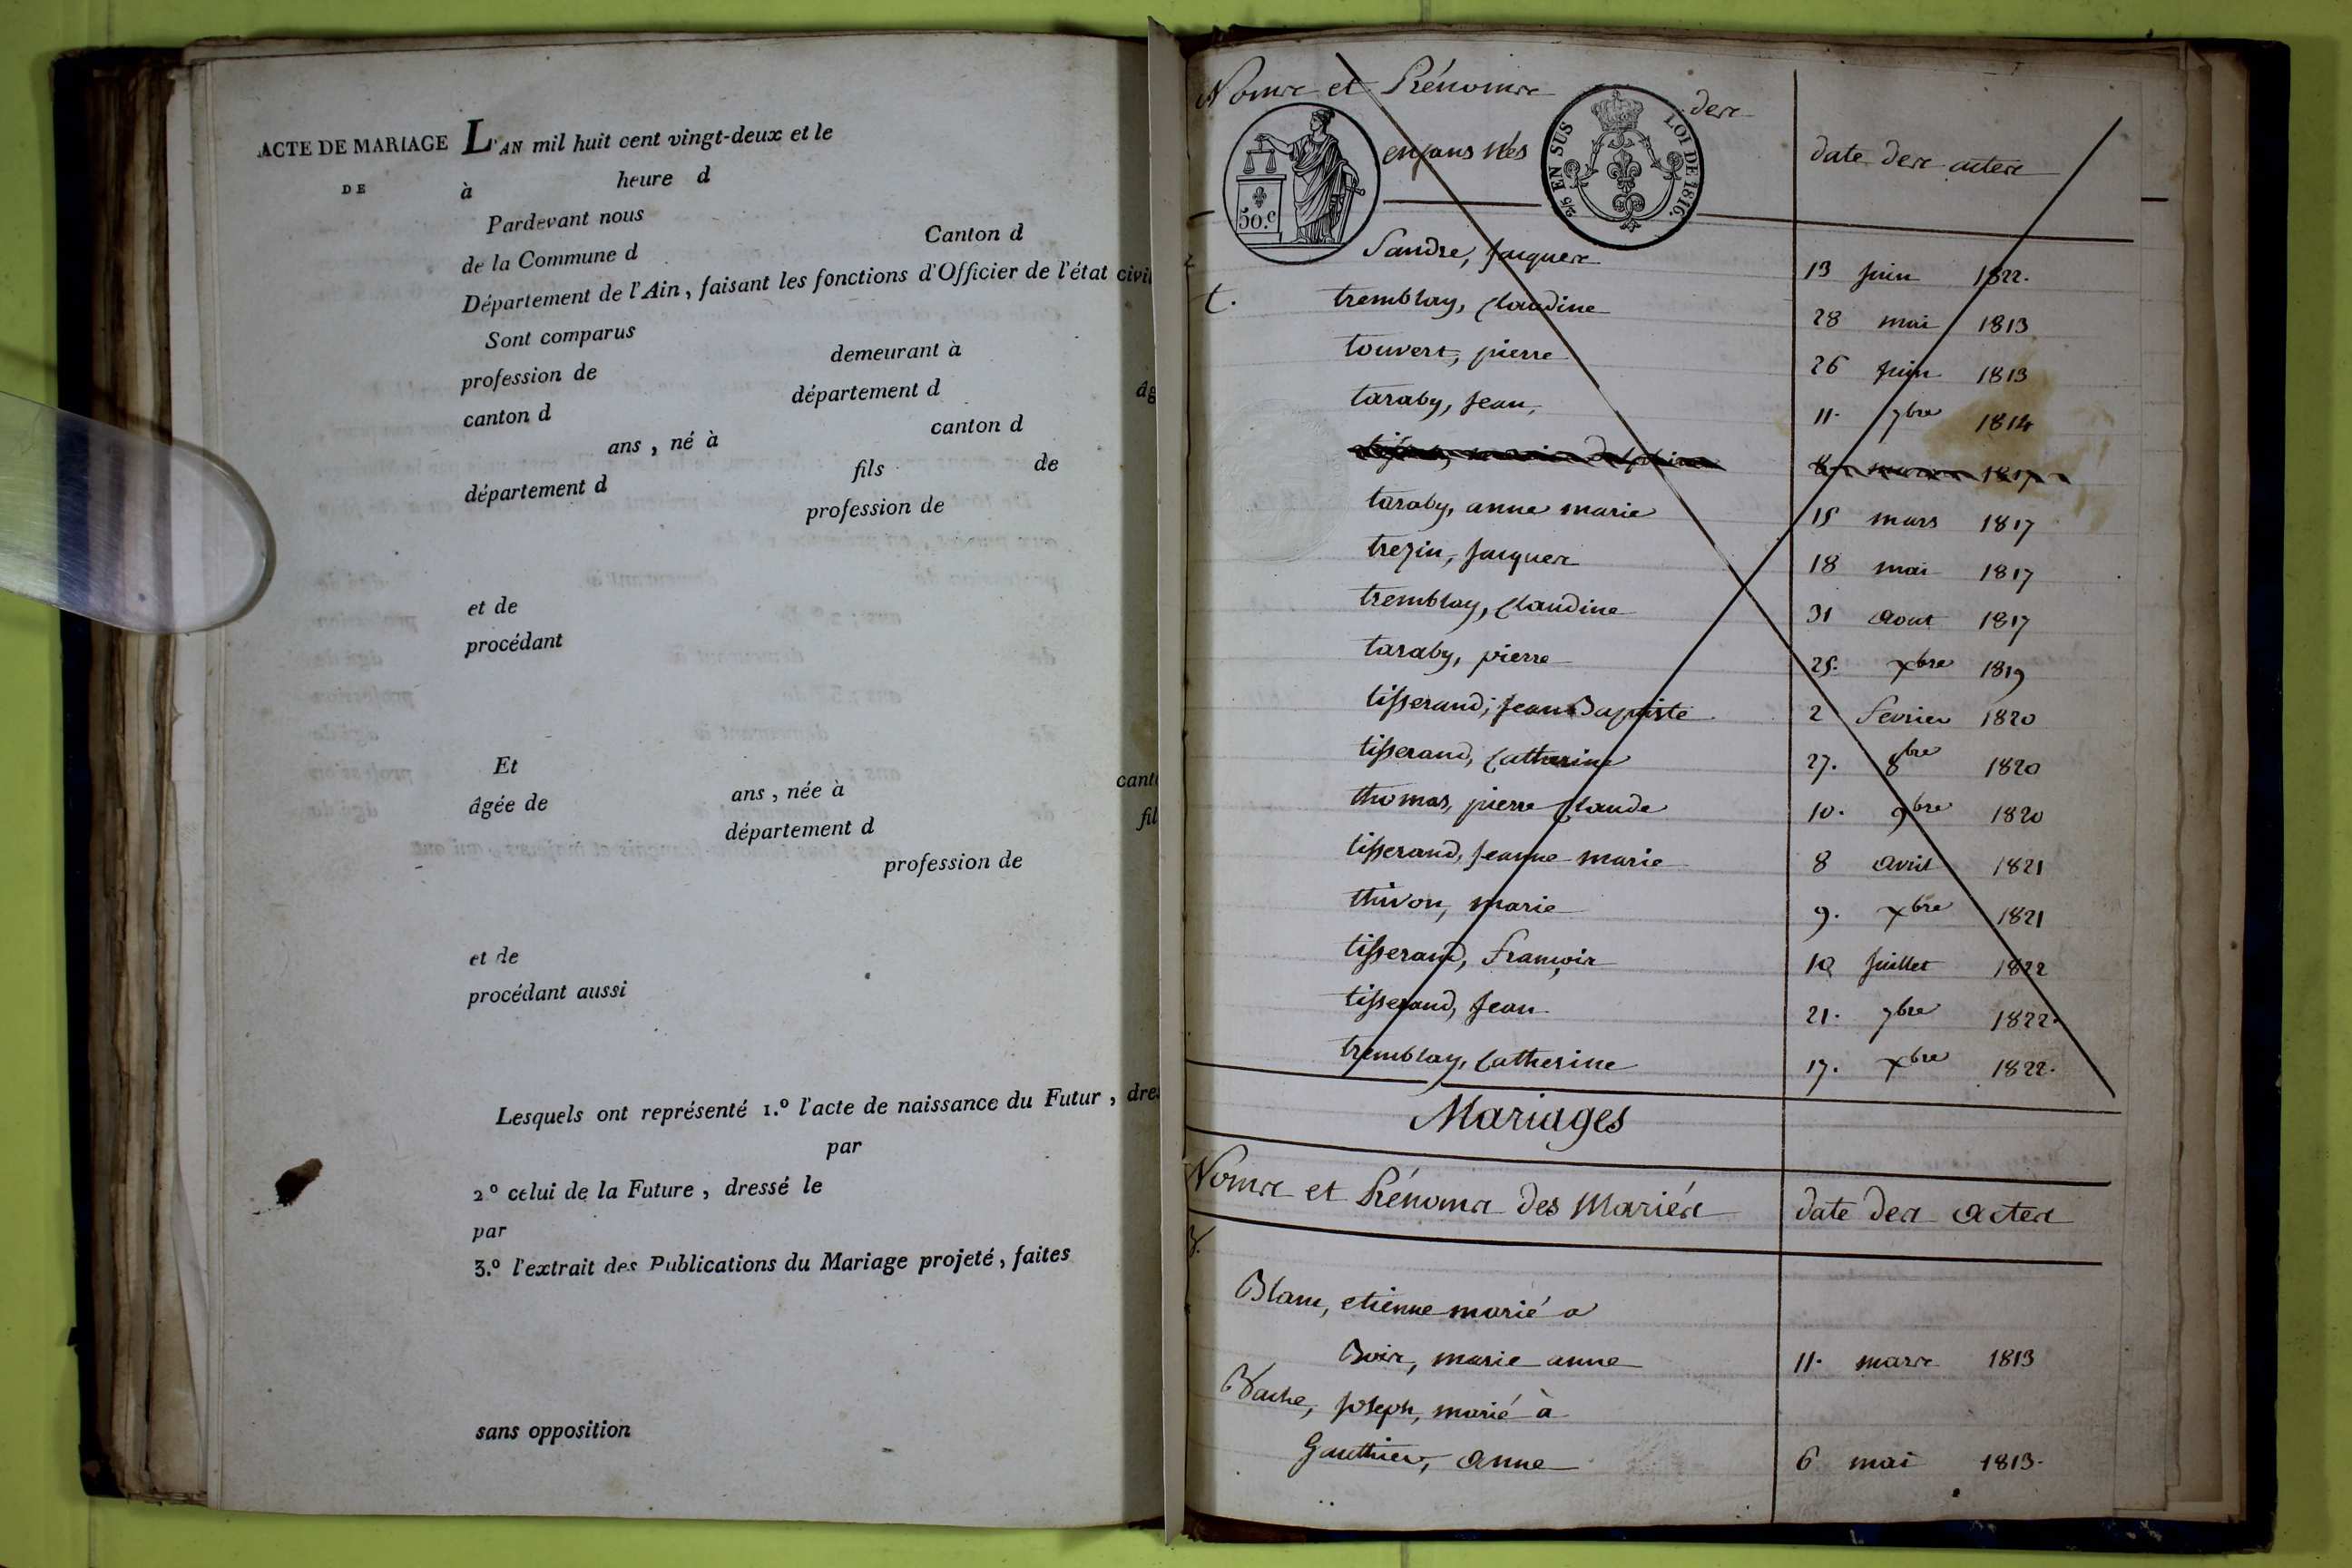 ACTE DE MARIAGE L'AN mil huit cent vingt-deux et le
DE à heure d
Pardevant nous
de la Commune d Canton d
Département de l'Ain, faisant les fonctions d'Officier de l'état civil
Sont comparus
profession de demeurant à
canton d département d âg
ans, né à canton d
département d fils de
profession de
et de
procédant
Et
âgée de ans, née à cant
département d fil
profession de
et de
procédant aussi
Lesquels ont représenté 1.º l'acte de naissance du Futur, dres
par
2º celui de la Future, dressé le
par
3.º l'extrait des Publications du Mariage projeté, faites
sans opposition
Noms et Prénoms des
enfans nés date des actes
50.c
2/5 EN SUS LOI DE 1816.
Sandre, Jacques 13 Juin 1822.
t. tremblay, Claudine 28 mai 1813
touvert, pierre 26 Juin 1813
taraby, Jean, 11. 7bre 1814
1817
taraby, anne marie 15 mars 1817
trezin, Jacques 18 mai 1817
tremblay, Claudine 31 Aout 1817
taraby, pierre 25. Xbre 1819
tisserand, Jean Baptiste 2 fevrier 1820
tisserand, Catherine 27. 8bre 1820
thomas, pierre Claude 10. 9bre 1820
tisserand, Jeanne marie 8 Avril 1821
thivon, marie 9. Xbre 1821
tisserand, François 10 Juillet 1822
tisserand, Jean 21. 7bre 1822.
tremblay, Catherine 17. Xbre 1822.
Mariages
Noms et Prénoms des Mariés date des Actes
B.
Blanc, etienne marié a
Bois, marie anne 11. mars 1813
Joseph, marié à
Gauthier, Anne 6 mai 1813.